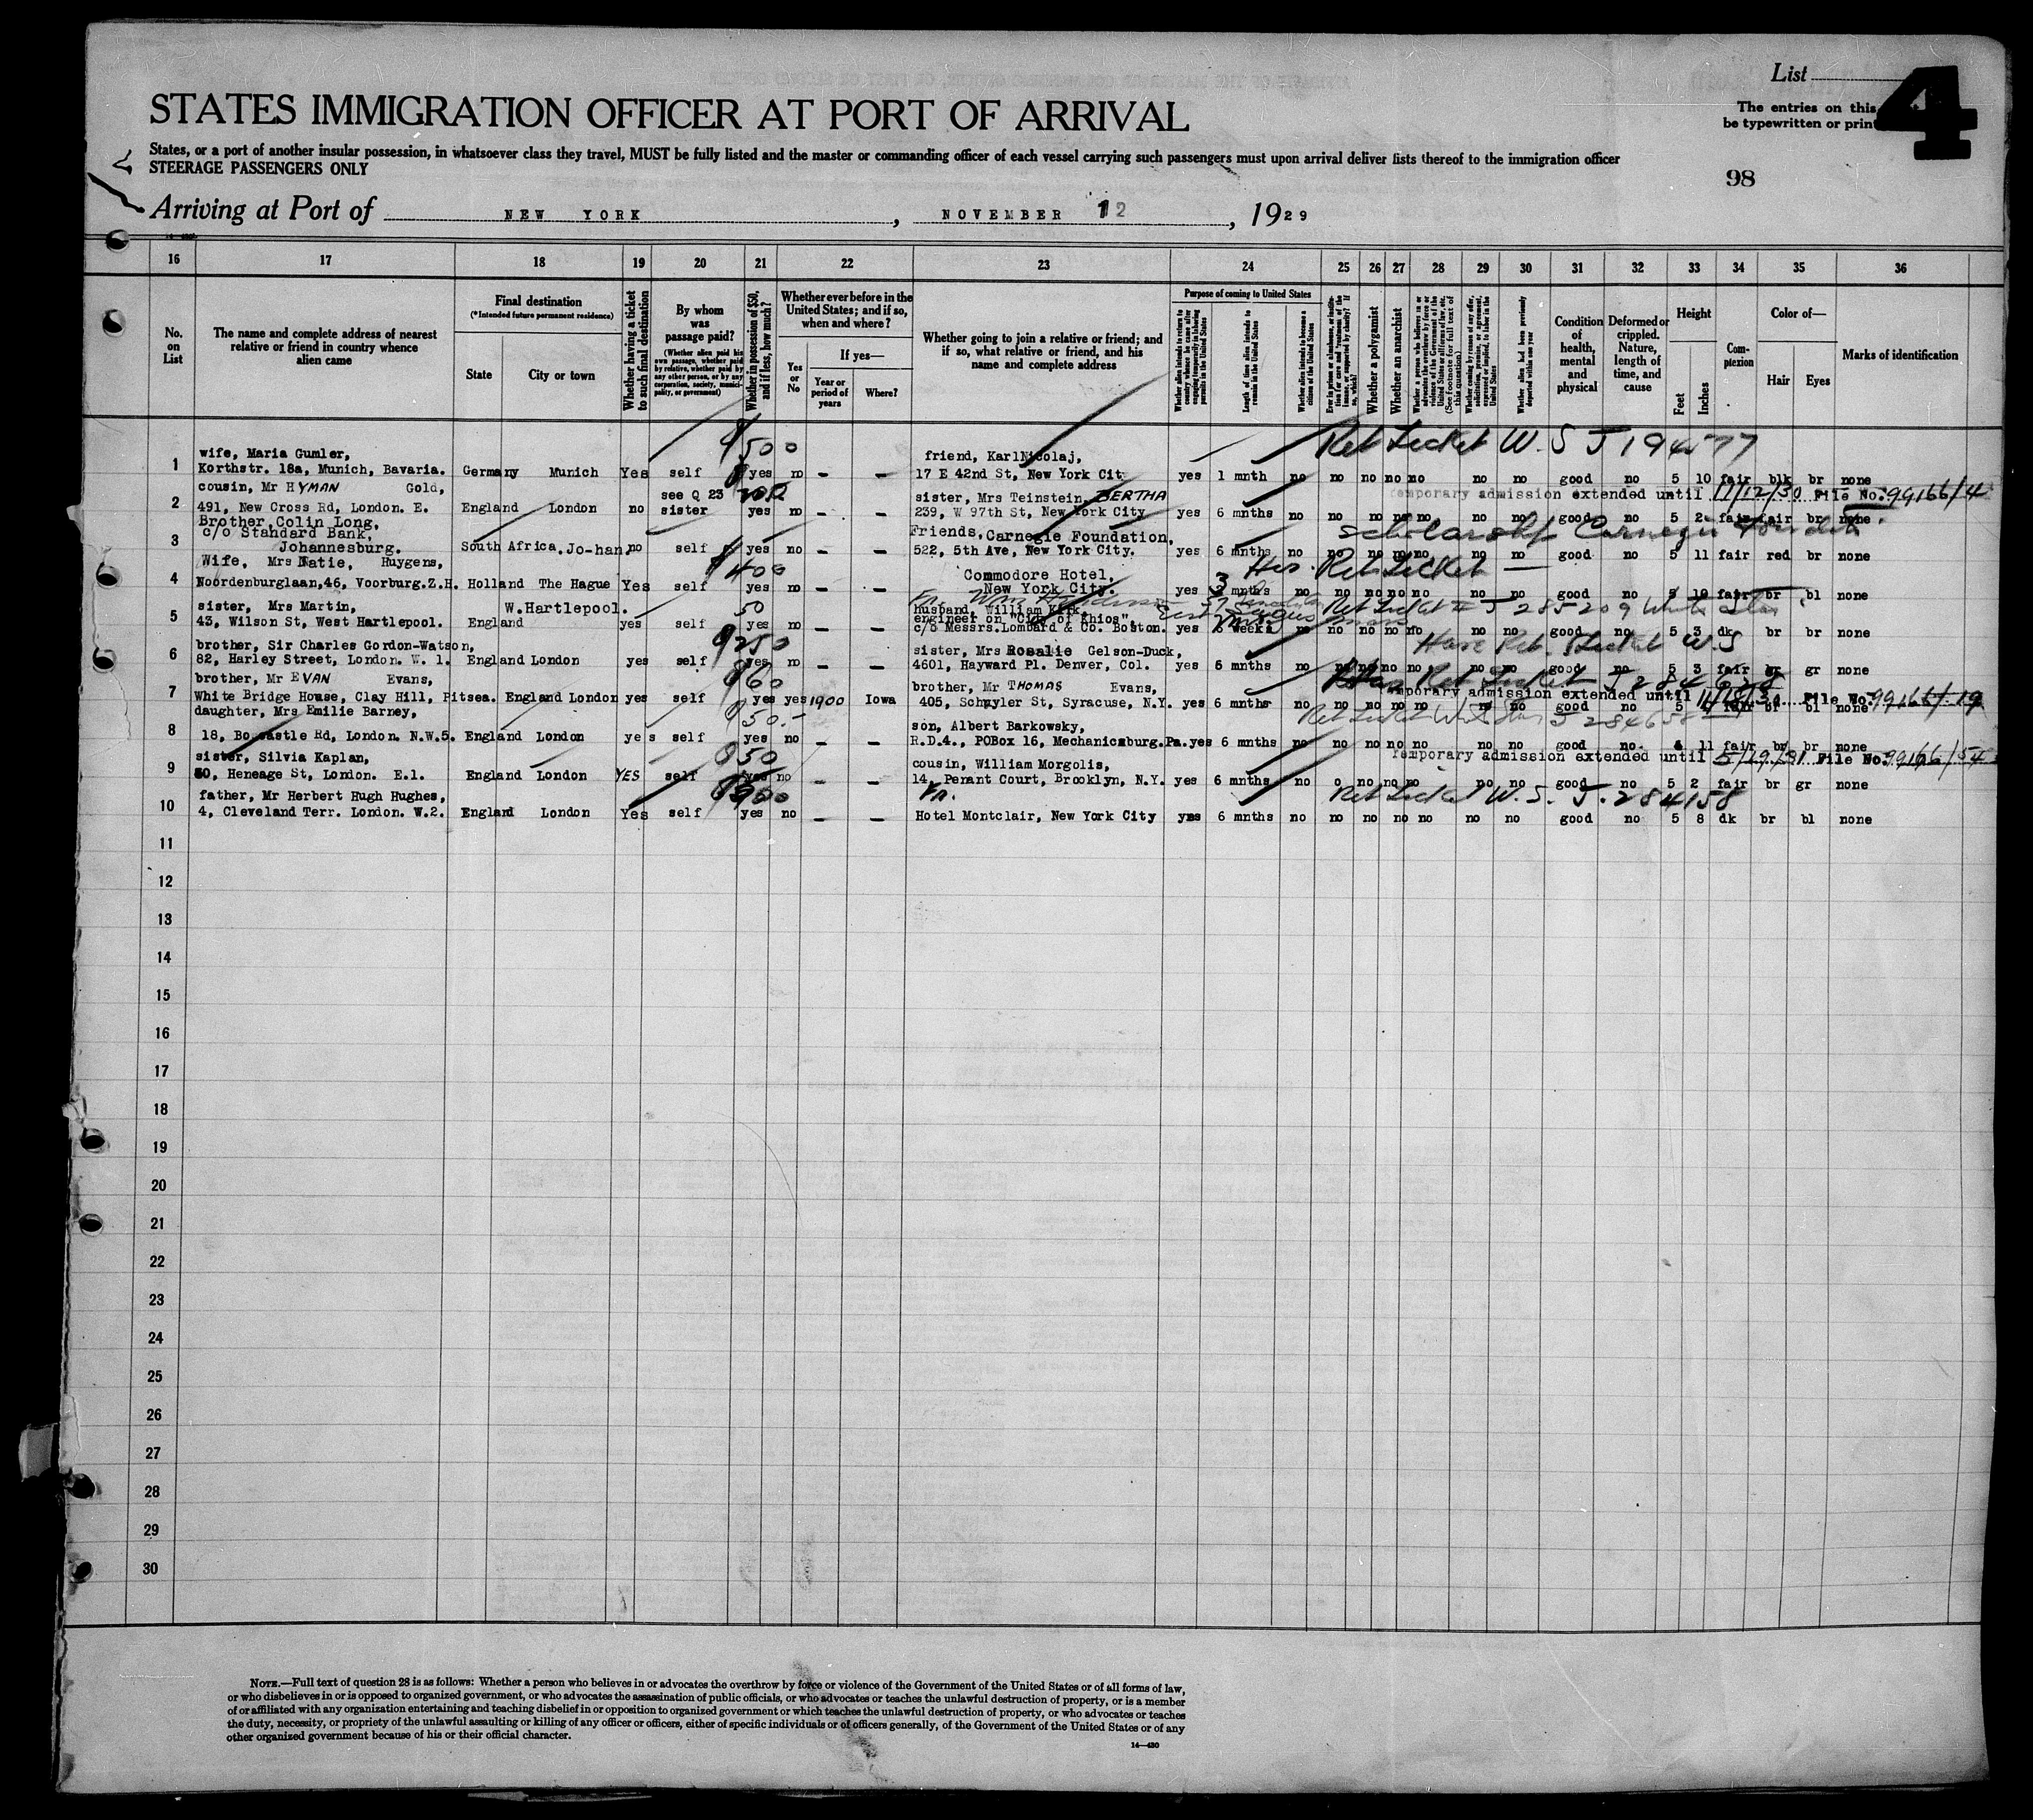 List
4
STATES IMMIGRATION OFFICER AT PORT OF ARRIVAL
The entries on this
be typewritten or print
States, or a port of another insular possession, in whatsoever class they travel, MUST be fully listed and the master or commanding officer of each vessel carrying such passengers must upon arrival deliver lists thereof to the immigration officer
STEERAGE PASSENGERS ONLY
98
Arriving at Port of NEW YORK, NOVEMBER 12, 1929
16 17 18 19 20 21 22 23 24 25 26 27 28 29 30 31 32 33 34 35 36
No. on List
The name and complete address of nearest relative or friend in country whence alien came
Final destination
(*Intended future permanent residence)
State
City or town
Whether having a ticket to such final destination
By whom was passage paid?
(Whether alien paid his own passage, whether paid by relative, whether paid by any other person, or by any corporation, society, municipality, or government)
Whether in possession of $50, and if less, how much?
Whether ever before in the United States; and if so, when and where?
Yes or No
If yes—
Year or period of years
Where?
Whether going to join a relative or friend; and if so, what relative or friend, and his name and complete address
Purpose of coming to United States
Whether alien intends to return to country whence he came after engaging temporarily in laboring pursuits in the United States
Length of time alien intends to remain in the United States
Whether alien intends to become a citizen of the United States
Ever in prison or almshouse, or institution for care and treatment of the insane, or supported by charity? If so, which?
Whether a polygamist
Whether an anarchist
Whether a person who believes in or advocates the overthrow by force or violence of the Government of the United States or all forms of law, etc. (See footnote for full text of this question)
Whether coming by reason of any offer, solicitation, promise, or agreement, expressed or implied, to labor in the United States
Whether alien had been previously deported within one year
Condition of health, mental and physical
Deformed or crippled. Nature, length of time, and cause
Height
Feet
Inches
Complexion
Color of—
Hair
Eyes
Marks of identification
$500 Ret Ticket W.S J 194577
wife, Maria Gumler, friend, Karl Nicolaj,
1 Korthstr. 18a, Munich, Bavaria. Germany Munich Yes self yes no — — 17 E 42nd St, New York Cit yes 1 mnth no no no no no no no good no 5 10 fair blk br none
cousin, Mr HYMAN Gold, see Q 23 sister, Mrs Teinstein, BERTHA temporary admission extended until 11/12/30 File No. 99166/4
2 491, New Cross Rd, London. E. England London no sister yes no — — 239, W 97th St, New York City yes 6 mnths no no no no no no no good no 5 2 fair fair br none
Brother, Colin Long, Friends, Carnegie Foundation, Scholarship Carnegie
c/o Standard Bank,
3 Johannesburg. South Africa, Jo-han. no self yes no — — 522, 5th Ave, New York City. yes 6 mnths no no no no no no no good no 5 11 fair red br none
Wife, Mrs Natie, Huygens, $400 Commodore Hotel, Has Ret Ticket
4 Noordenburglaan, 46, Voorburg. Z.H. Holland The Hague Yes self yes no — — New York City. yes 3 mnths no no no no no no no good no 5 10 fair br bl none
sister, Mrs Martin, W. Hartlepool. 50 husband, William Kirk, Ret Ticket # J 285209 White Star
engineer on "City of Khios",
5 43, Wilson St, West Hartlepool. England yes self yes no — — c/o Messrs. Lombard & Co. Boston. yes weeks no no no no no no no good no 5 3 dk br br none
brother, Sir Charles Gordon-Watson, $250 sister, Mrs Rosalie Gelson-Duck, Have Ret. Ticket W.S
6 82, Harley Street, London. W. 1. England London yes self yes no — — 4601, Hayward Pl. Denver, Col. yes 6 mnths no no no no no no no good no 5 3 fair br gr none
brother, Mr EVAN Evans, $60 brother, Mr THOMAS Evans, Ret Ticket J 284658
temporary admission extended until File No. 99166/19
7 White Bridge House, Clay Hill, Pitsea. England London yes self yes yes 1900 Iowa 405, Schuyler St, Syracuse, N.Y. yes 6 mnths no no no no no no no good no 5 fair br bl none
daughter, Mrs Emilie Barney, $50.- son, Albert Barkowsky, Ret Ticket White Star J 284658
8 18, Boscastle Rd, London. N.W.5. England London yes self yes no — — R.D.4., POBox 16, Mechanicsburg. Pa. yes 6 mnths no no no no no no no good no 4 11 fair br br none
sister, Silvia Kaplan, $50 cousin, William Morgolis, Temporary admission extended until 5/29/31 File No. 99166/54
9 50, Heneage St, London. E.1. England London YES self yes no — — 14, Penant Court, Brooklyn, N.Y. yes 6 mnths no o no no no no no good no 5 2 fair br gr none
father, Mr Herbert Hugh Hughes, Ret Ticket W.S. J. 284158
10 4, Cleveland Terr. London. W.2. England London Yes self yes no — — Hotel Montclair, New York City yes 6 mnths no no no no no no no good no 5 8 dk br bl none
11
12
13
14
15
16
17
18
19
20
21
22
23
24
25
26
27
28
29
30
NOTE.—Full text of question 28 is as follows: Whether a person who believes in or advocates the overthrow by force or violence of the Government of the United States or of all forms of law,
or who disbelieves in or is opposed to organized government, or who advocates the assassination of public officials, or who advocates or teaches the unlawful destruction of property, or is a member
of or affiliated with any organization entertaining and teaching disbelief in or opposition to organized government or which teaches the unlawful destruction of property, or who advocates or teaches
the duty, necessity, or propriety of the unlawful assaulting or killing of any officer or officers, either of specific individuals or of officers generally, of the Government of the United States or of any
other organized government because of his or their official character.
14—430